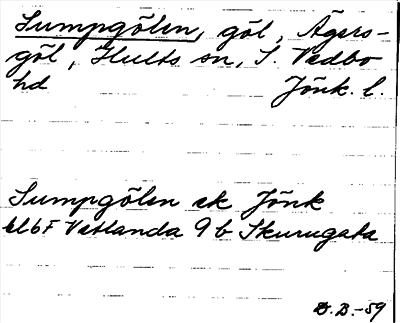 Sumpgölen, göl, Ägers-
göl, Hults sn, S. Vedbo
hd Jönk. l.
Sumpgölen ek Jönk
bl 6F Vetlanda 9b Skurugata
B.-59